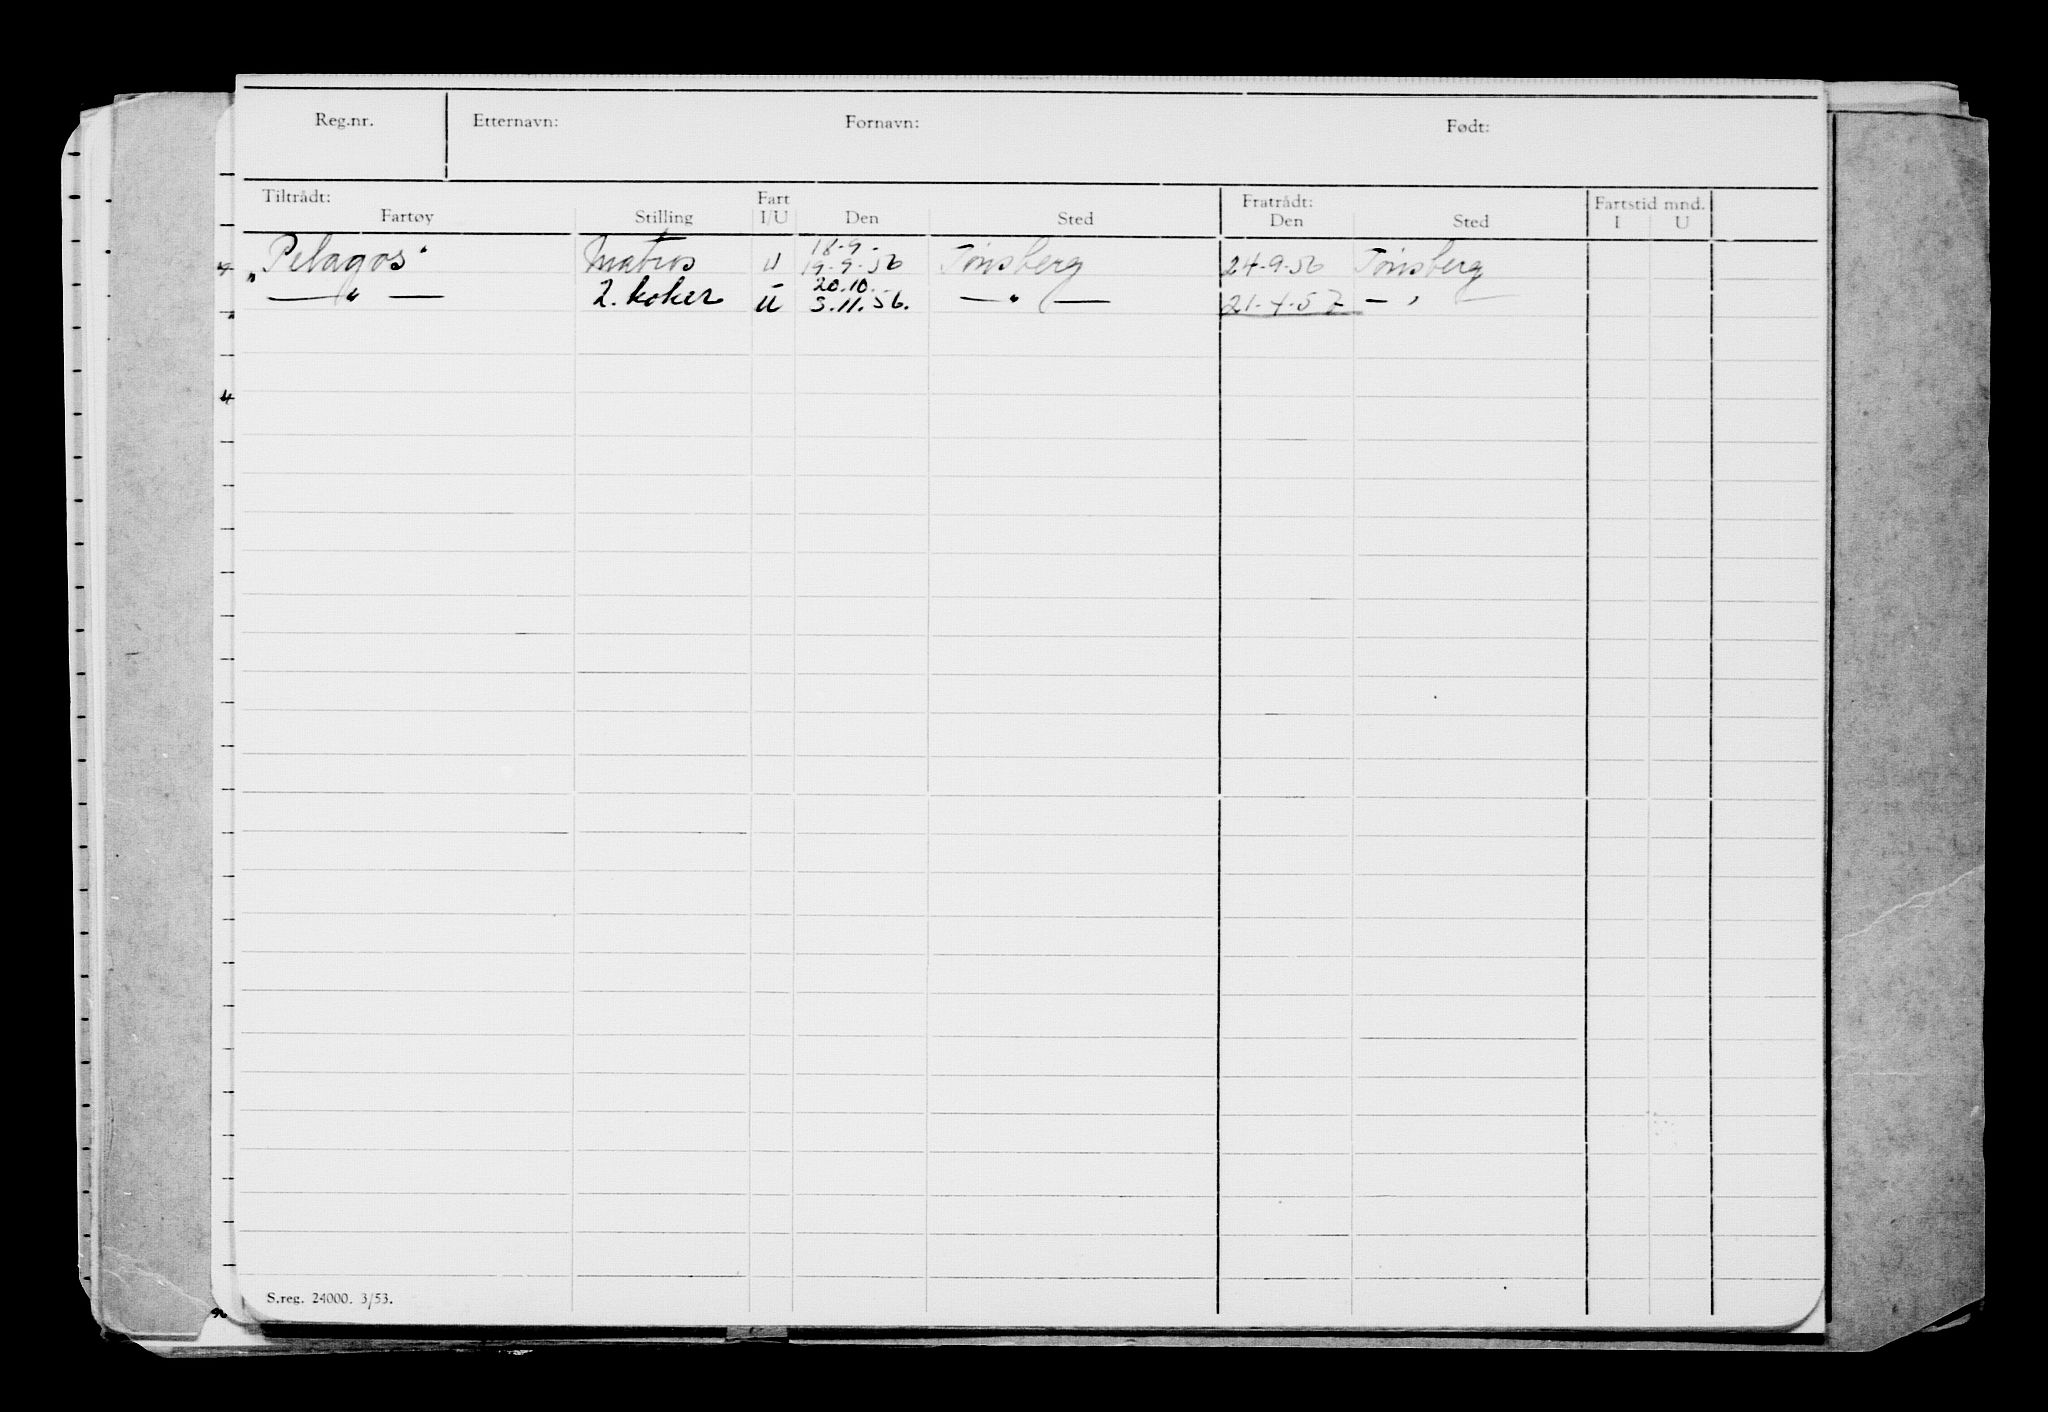 Reg.nr. Etternavn: Fornavn: Født:
Tiltrådt: Fart Fratrådt: Fartstid mnd.
Fartøy Stilling I/U Den Sted Den Sted I U
18-9-
"Pelagos" Matros U 19-9-56 Tønsberg 24-9-56 Tønsberg
20.10.-
— " — 2. koker U 3.11.56. — " — 21-4-57 — " —
S.reg. 24000. 3/53.